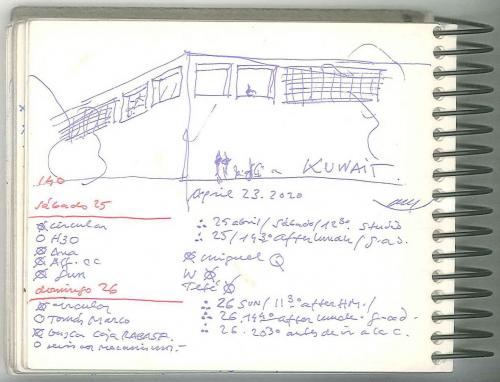 KUWAIT.
April 23. 2020
140
sábado 25
circular
H30
Ana
Aff. cc
domingo 26
circular
Tomás Marco
busca caja RABASF.
25 abril / sábado / 12:30 studio
25 / 14:30 after lunch / g.ad.
miguel Q
W
TeTé
26 SUN / 11:30 after HM. /
26 14:30 after lunch. g.ad.
26. 20:30 antes de ir a la c.